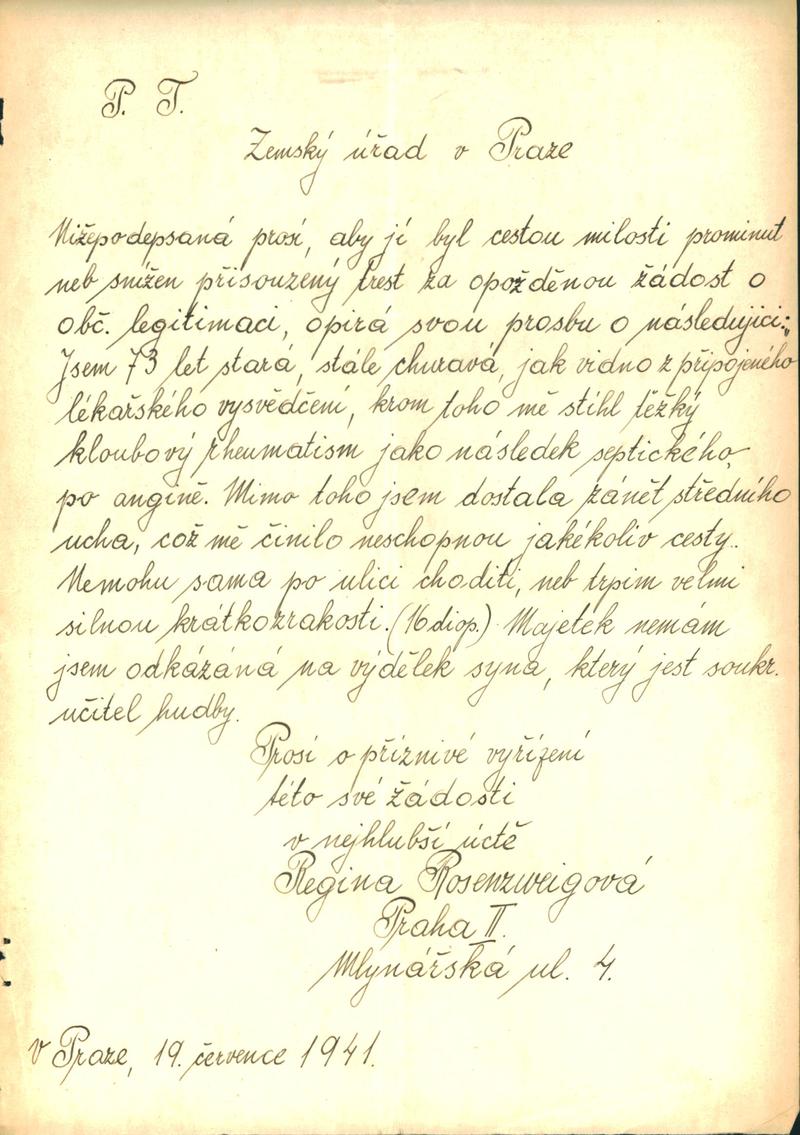 P. T.
Zemský úřad v Praze
Nížepodepsaná prosí, aby jí byl cestou milosti prominut
neb snížen přisouzený trest za opožděnou žádost o
obč. legitimaci, opírá svou prosbu o následující:
Jsem 73 let stará, stále churavá, jak vidno z připojeného
lékařského vysvědčení, krom toho mě stihl těžký
kloubový rheumatism jako následek septického,
po angině. Mimo toho jsem dostala zánět středního
ucha, což mě činilo neschopnou jakékoliv cesty.
Nemohu sama po ulici choditi, neb trpím velmi
silnou krátkozrakosti. (16 diop.) Majetek nemám
jsem odkázáná na výdělek syna, který jest soukr.
učitel hudby.
Prosí o příznivé vyřízení
této své žádosti
v nejhlubší úctě
Regina Rosenzweigová
Praha II.
Mlynářská ul. 4.
V Praze, 19. července 1941.